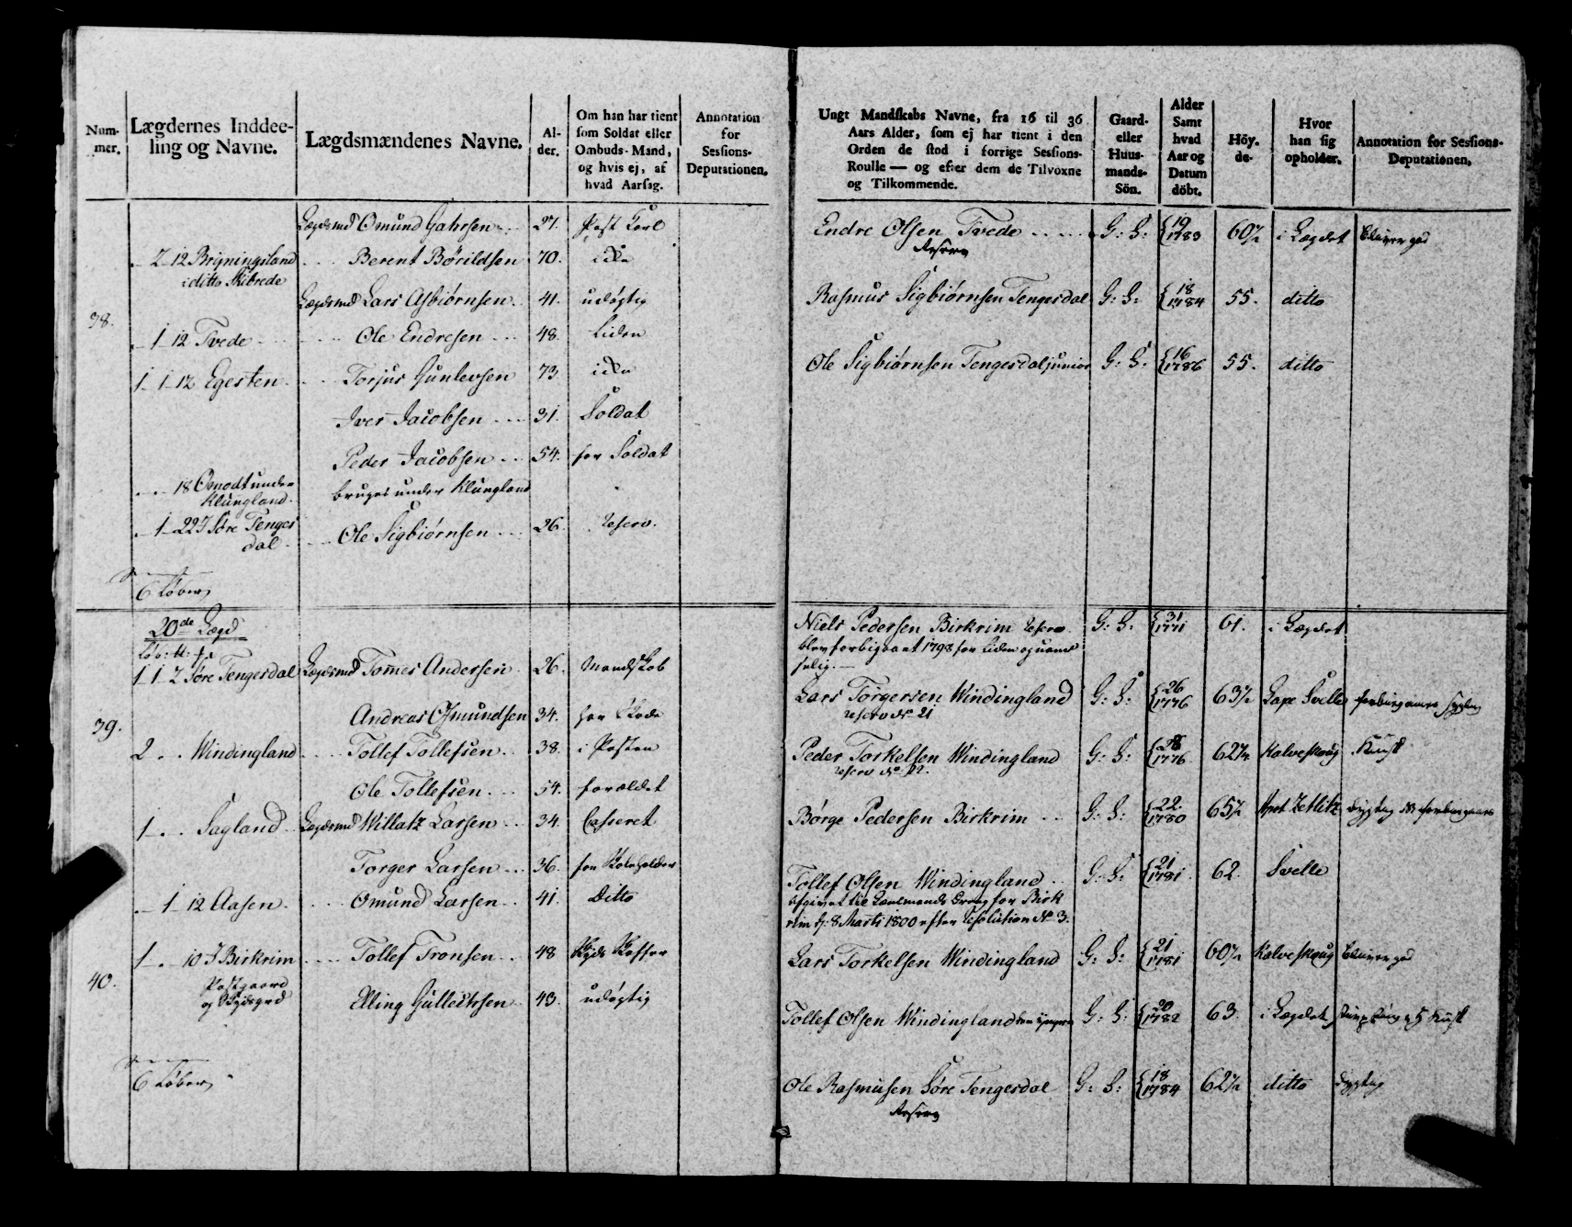 Num-
mer.
Lægdernes Inddee-
ling og Navne.
Lægdsmændenes Navne.
Al-
der.
Om han har tient
som Soldat eller
Ombuds-Mand,
og hvis ej, af
hvad Aarsag.
Annotation
for
Sessions-
Deputationen.
38.
Lægdsmd Omund Gahrsen 27.
2 12 Brÿningsland Berent Börildsen 70. icke
i ditto Skibrede
Lægdsmd Lars Asbiörnsen 41. udögtig
1 12 Tvede Ole Endresen 48. liden
1 1 12 Egesten Torjus Gunlevsen 73 icke
Iver Jacobsen 31. Soldat
Peder Jacobsen 54. før Soldat
18 Omodt under bruges under Klungland
Klungland
1 22½ Söre Tenges Ole Sigbiörnsen 26. Reserv.
dal
6 Løber
20de Lægd
39.
1 1 2 Söre Tengesdal Lægdsmd Tomes Andersen 26. Mandskab
Andreas Osmundsen 34.
2 Windingland Tollef Tollefsen 38.
Ole Tollefsen 54. forældet
1 Sagland Lægdsmd Willatz Larsen 34. Casseret
Torger Larsen 36.
1 12 Aasen Omund Larsen 41. Ditto
40.
1 10½ Birkrim Tollef Tronsen 48
Postgaard
Elling Gulleichsen 43. udögtig
6 Løber
Ungt Mandskabs Navne, fra 16 til 36
Aars Alder, som ej har tient i den
Orden de stod i forrige Sessions-
Roulle — og efter dem de Tilvoxne
og Tilkommende.
Gaard-
eller
Huus-
mands-
Sön.
Alder
Samt
hvad
Aar og
Datum
döbt.
Höy-
de-
Hvor
han sig
opholder.
Annotation for Sessions-
Deputationen.
Endre Olsen Tvede G: S: 19 1783 60½ i Lægdet
Reserv
Rasmus Sigbiörnsen Tengesdal G: S: 18 1784 55. ditto
Ole Sigbiörnsen Tengesdal junior G: S: 16 1786 55. ditto
Niels Pedersen Birkrim Reserv G: S: 31 1771 61. i Lægdet
blev forbigaaet 1798 for liden og uan-
selig
Lars Torgersen Windingland G: S: 26 1776 63½ Svelle
Reserv No 21
Peder Torkelsen Windingland G: S: 1776 62¼ Kalveskoug
Reserv No
Börge Pedersen Birkrim G: S: 22 1780 65½ Zetlitz
Tollef Olsen Windingland G: S: 21 1781 62. Svelle
afgivet til Lænsmands Dreng for Birk
rim d: 8 Marti 1800 efter Resolution No 3.
Lars Torkelsen Windingland G: S: 21 1781 60½ Kalveskoug
Tollef Olsen Windingland den yngere G: S: 20 1782 63. i Lægdet
Ole Rasmusen Söre Tengesdal G: S: 18 1784 62½ ditto
Reserv